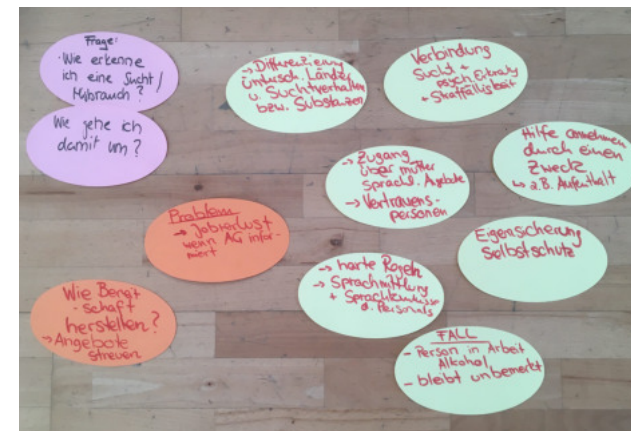 Frage:
·Wie erkenne
ich eine Sucht/
Mißbrauch?
Wie gehe ich
damit um?
→ Differenzierung
untersch. Länder
u. Suchtverhalten
bzw. Substanzen
Verbindung
Sucht +
psych. Erkrank.
+ Straffälligkeit
→ Zugang
über mutter
sprachl. Angebote
→ Vertrauens-
personen
Hilfe annehmen
durch einen
Zweck
↳ z.B. Aufenthalt
Problem
→ Jobverlust
wenn AG infor-
miert
Eigensicherung
Selbstschutz
→ harte Regeln
→ Sprachmittlung
+ Sprachkenntnisse
d. Personals
Wie Bereit
-schaft
herstellen?
→ Angebote
streuen
FALL
- Person in Arbeit
Alkohol
- bleibt unbemerkt